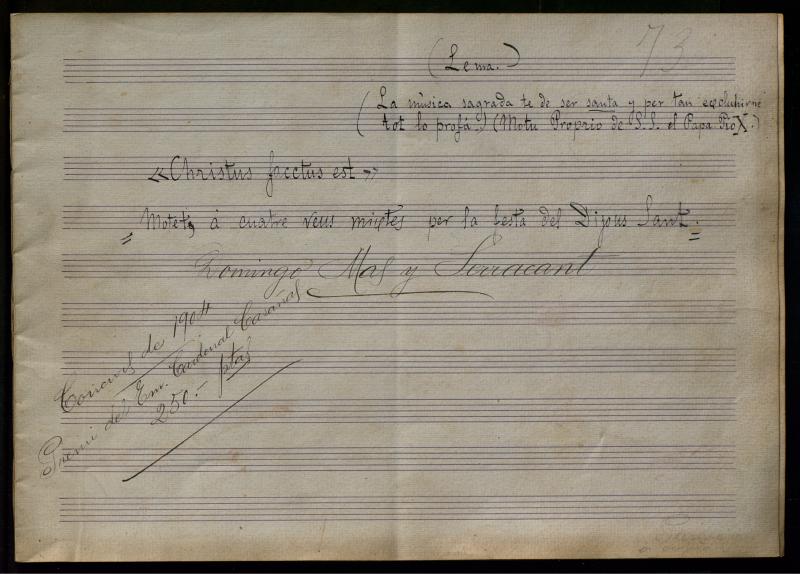 73
(Lema.)
(La música sagrada te de ser santa y per tan excluhirne
tot lo profá.) (Motu Proprio de S.S. el Papa Pio X.)
«Christus factus est»
Motet, á cuatre veus mixtes per la festa del Dijous Sant.
Domingo Mas y Serracant
Concurs de 1904
Premi del Em. Cardenal Casañas
250.- ptas